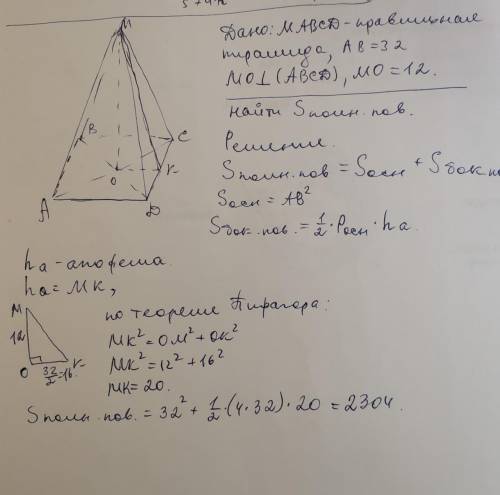 М
B
C
O
K
A
D
Дано: MABCD - правильная
пирамида, AB=32
MO⊥(ABCD), MO=12.
найти Sполн.пов.
Решение.
Sполн.пов = Sосн + Sбок по
Sосн = AB²
Sбок.пов. = 1/2 · Pосн · ha.
ha - апофема.
ha = MK,
M
12
O
32/2=16
K
по теореме Пифагора:
MK² = OM² + OK²
MK² = 12² + 16²
MK = 20.
Sполн.пов. = 32² + 1/2 · (4·32) · 20 = 2304.